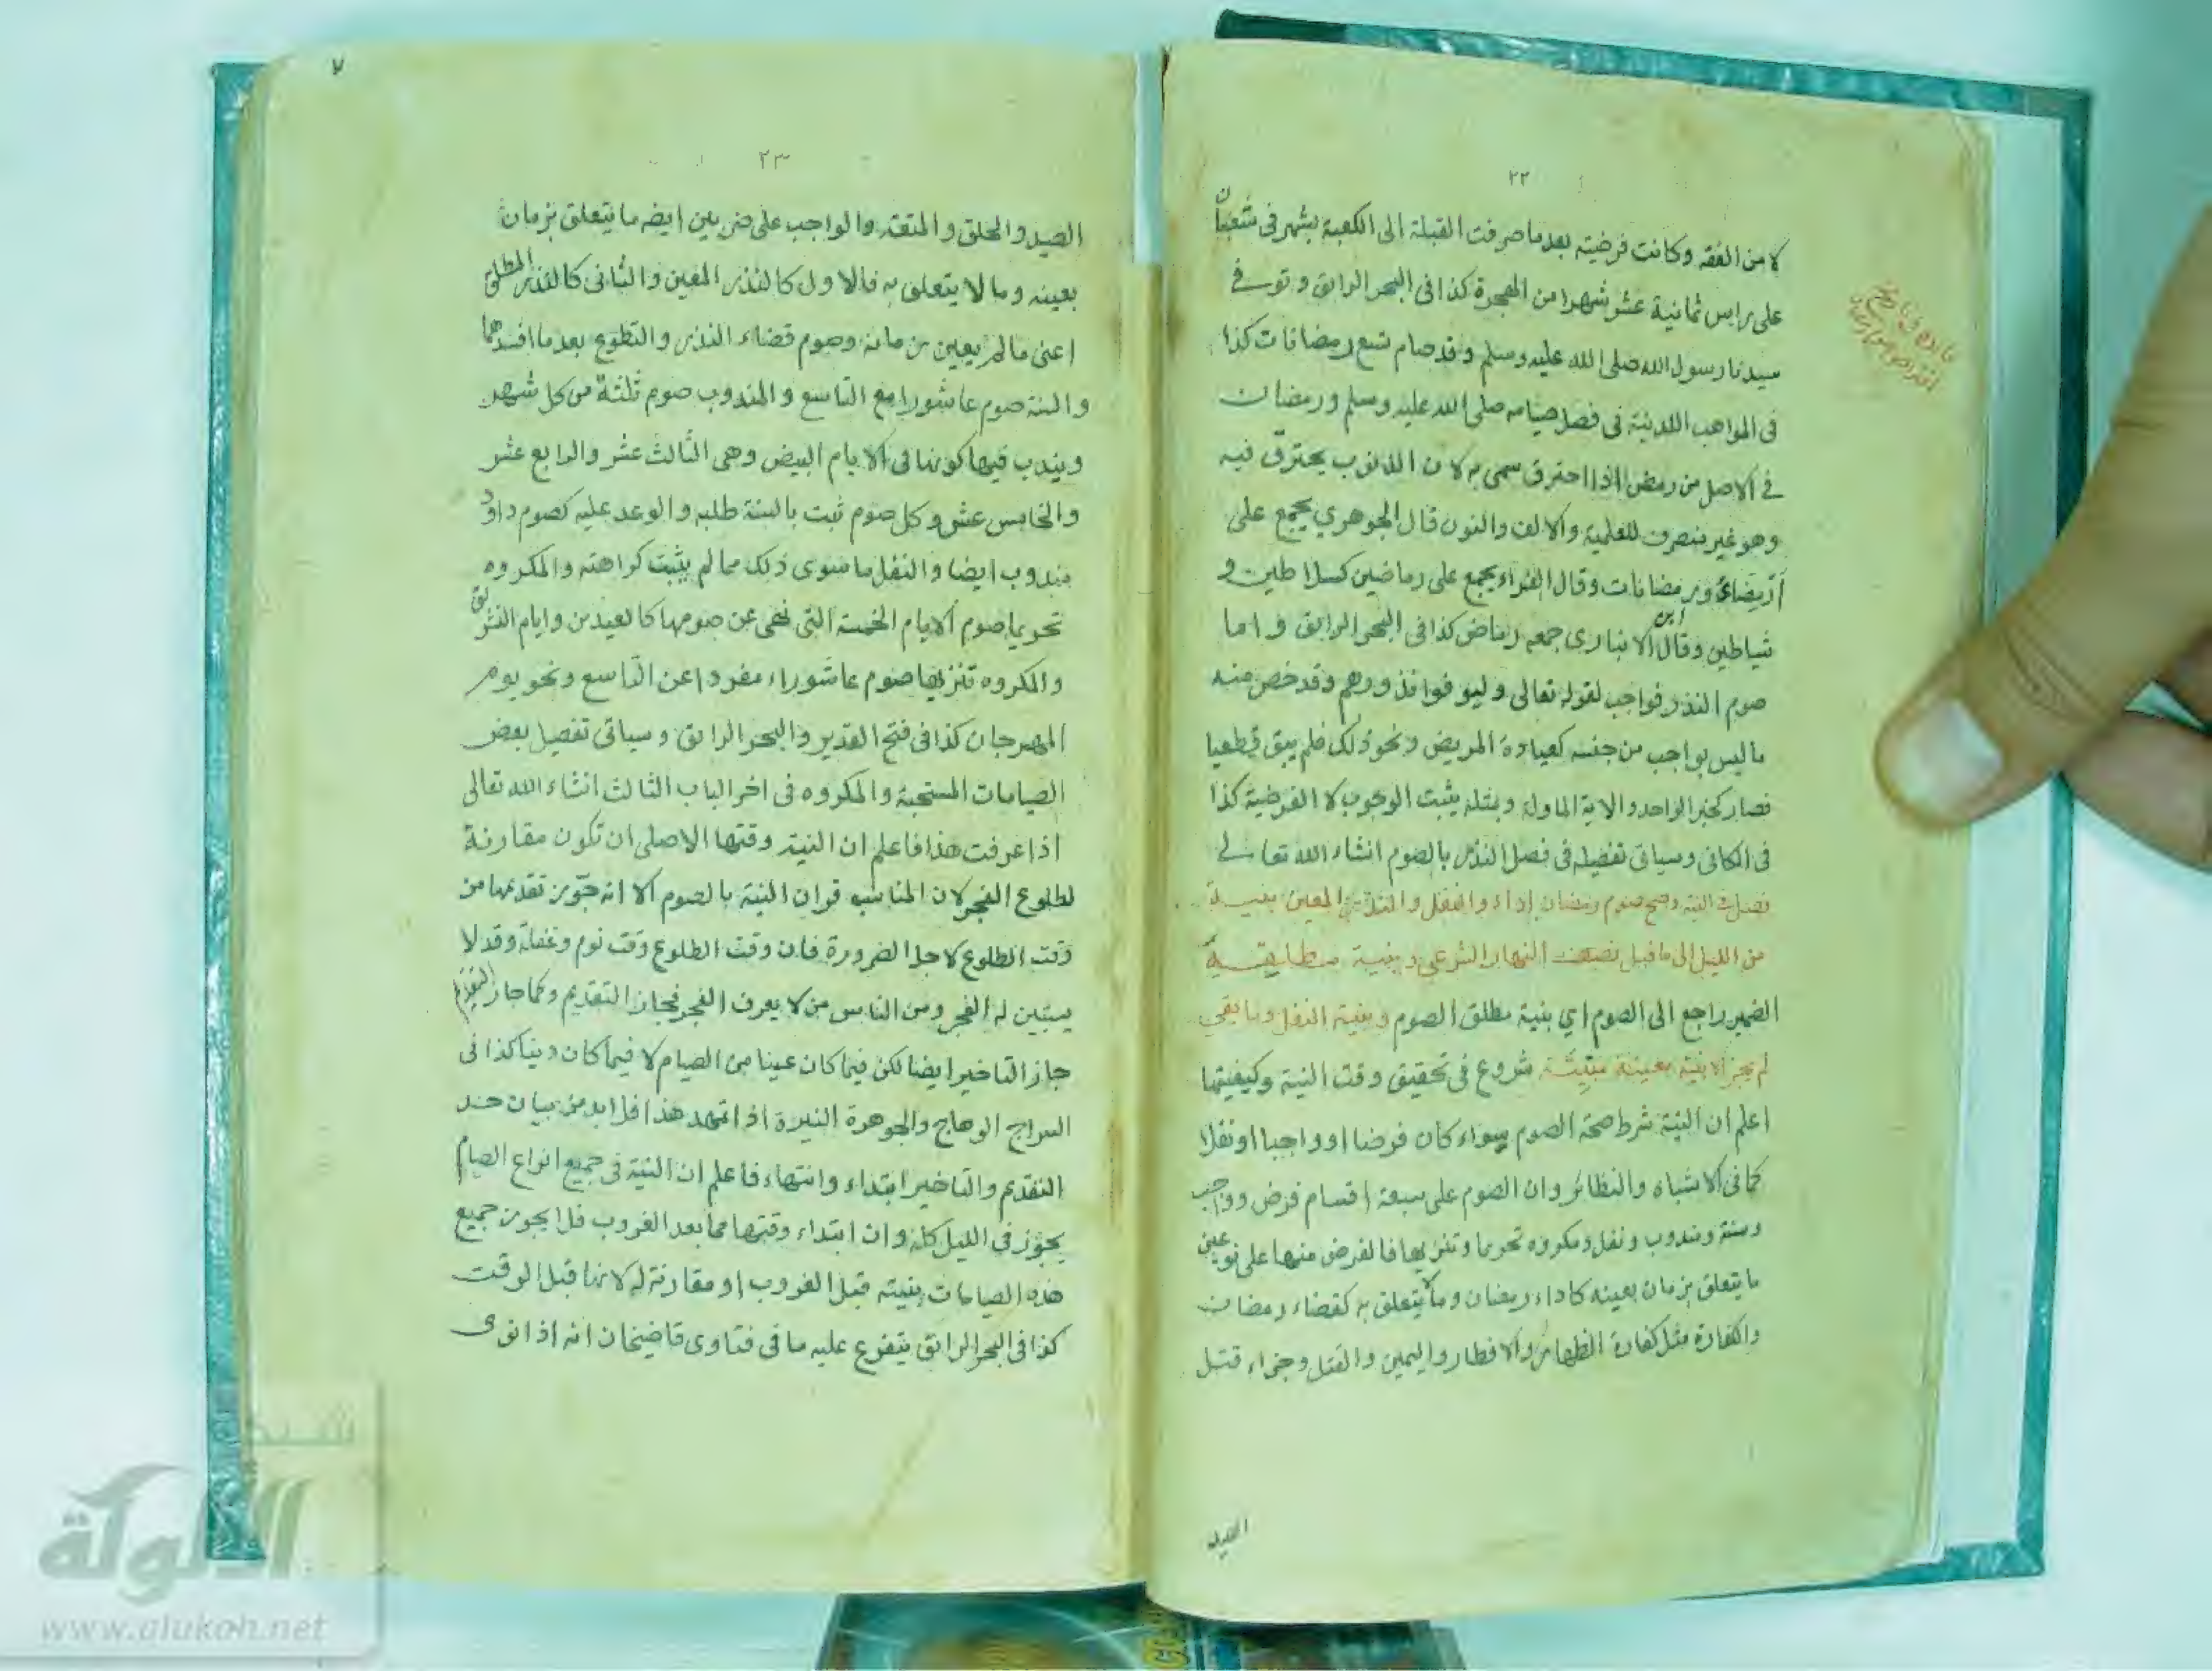 ٢٢
لا من الفقه وكانت فرضيته بعد ما صرفت القبلة الى الكعبة بشهر فى شعبان
على راس ثمانية عشر شهرا من الهجرة كذا فى البحر الرائق وتوفي
سيدنا رسول الله صلى الله عليه وسلم وقد صام تسع رمضانات كذا
فى المواهب اللدنية فى فصل صيامه صلى الله عليه وسلم ورمضان
في الاصل من رمض اذا احترق سمى به لان الذنوب يحترق فيه
وهو غير منصرف للعلمية والالف والنون قال الجوهري يجمع على
أرمضاء ورمضانات وقال الفراء يجمع على رماضين كسلاطين و
شياطين وقال ابن الانبارى جمعه رماض كذا فى البحر الرائق واما
صوم النذر فواجب لقوله تعالى وليوفوا نذورهم وقد خص منه
ما ليس بواجب من جنسه كعيادة المريض ونحو ذلك فلم يبق قطعيا
فصار كخبر الواحد والاية الماولة وبمثله يثبت الوجوب لا الفرضية كذا
فى الكافى وسياتى تفصيله فى فصل النذر بالصوم انشاء الله تعالى
فصل فى النية وصح صوم رمضان اداء والنفل والنذر المعين بنية
من الليل الى ما قبل نصف النهار الشرعي وبنية مطلقة
الضمير راجع الى الصوم اي بنية مطلق الصوم وبنية النفل وما بقي
لم يجز الا بنية معينة مبيتة شروع فى تحقيق وقت النية وكيفيتها
اعلم ان النية شرط صحة الصوم سواء كان فرضا او واجبا او نفلا
كما فى الاشباه والنظائر وان الصوم على سبعة اقسام فرض وواجب
وسنة ومندوب ونفل ومكروه تحريما وتنزيها فالفرض منها على نوعين
ما يتعلق بزمان بعينه كاداء رمضان وما لا يتعلق به كقضاء رمضان
والكفارة مثل كفارة الظهار والافطار واليمين والقتل وجزاء قتل
فائدة فى تاريخ
افتراض صوم رمضان
٧
٢٣
الصيد والحلق والمتعة والواجب على ضربين ايضه ما يتعلق بزمان
بعينه وما لا يتعلق به فالاول كالنذر المعين والثانى كالنذر المطلق
اعنى ما لم يعين زمانه وصوم قضاء النذر والتطوع بعد ما افسدهما
والسنة صوم عاشورا مع التاسع والمندوب صوم ثلثة من كل شهر
ويندب فيها كونها فى الايام البيض وهى الثالث عشر والرابع عشر
والخامس عشر وكل صوم ثبت بالسنة طلبه والوعد عليه كصوم داود
مندوب ايضا والنفل ما سوى ذلك مما لم يثبت كراهته والمكروه
تحريما صوم الايام الخمسة التى نهى عن صومها كالعيدين وايام التشريق
والمكروه تنزيها صوم عاشوراء مفردا عن التاسع ونحو يوم
المهرجان كذا فى فتح القدير والبحر الرائق وسياتى تفصيل بعض
الصيامات المستحبة والمكروه فى اخر الباب الثالث انشاء الله تعالى
اذا عرفت هذا فاعلم ان النية وقتها الاصلى ان تكون مقارنة
لطلوع الفجر لان المناسب قران النية بالصوم الا انه جوز تقديمها من
وقت الطلوع لاجل الضرورة فان وقت الطلوع وقت نوم وغفلة وقد لا
يستبين له الفجر ومن الناس من لا يعرف الفجر فجاز التقديم وكما جاز التقديم
جاز التاخير ايضا لكن فيما كان عينا من الصيام لا فيما كان دينا كذا فى
السراج الوهاج والجوهرة النيرة اذا تمهد هذا فلا بد من بيان حد
التقديم والتاخير ابتداء وانتهاء فاعلم ان النية فى جميع انواع الصيام
يجوز فى الليل كله وان ابتداء وقتها مما بعد الغروب فلا يجوز جميع
هذه الصيامات بنيته قبل الغروب او مقارنة له لانها قبل الوقت
كذا فى البحر الرائق يتفرع عليه ما فى فتاوى قاضيخان انه اذا نوى
شبكة
الألوكة
www.alukah.net